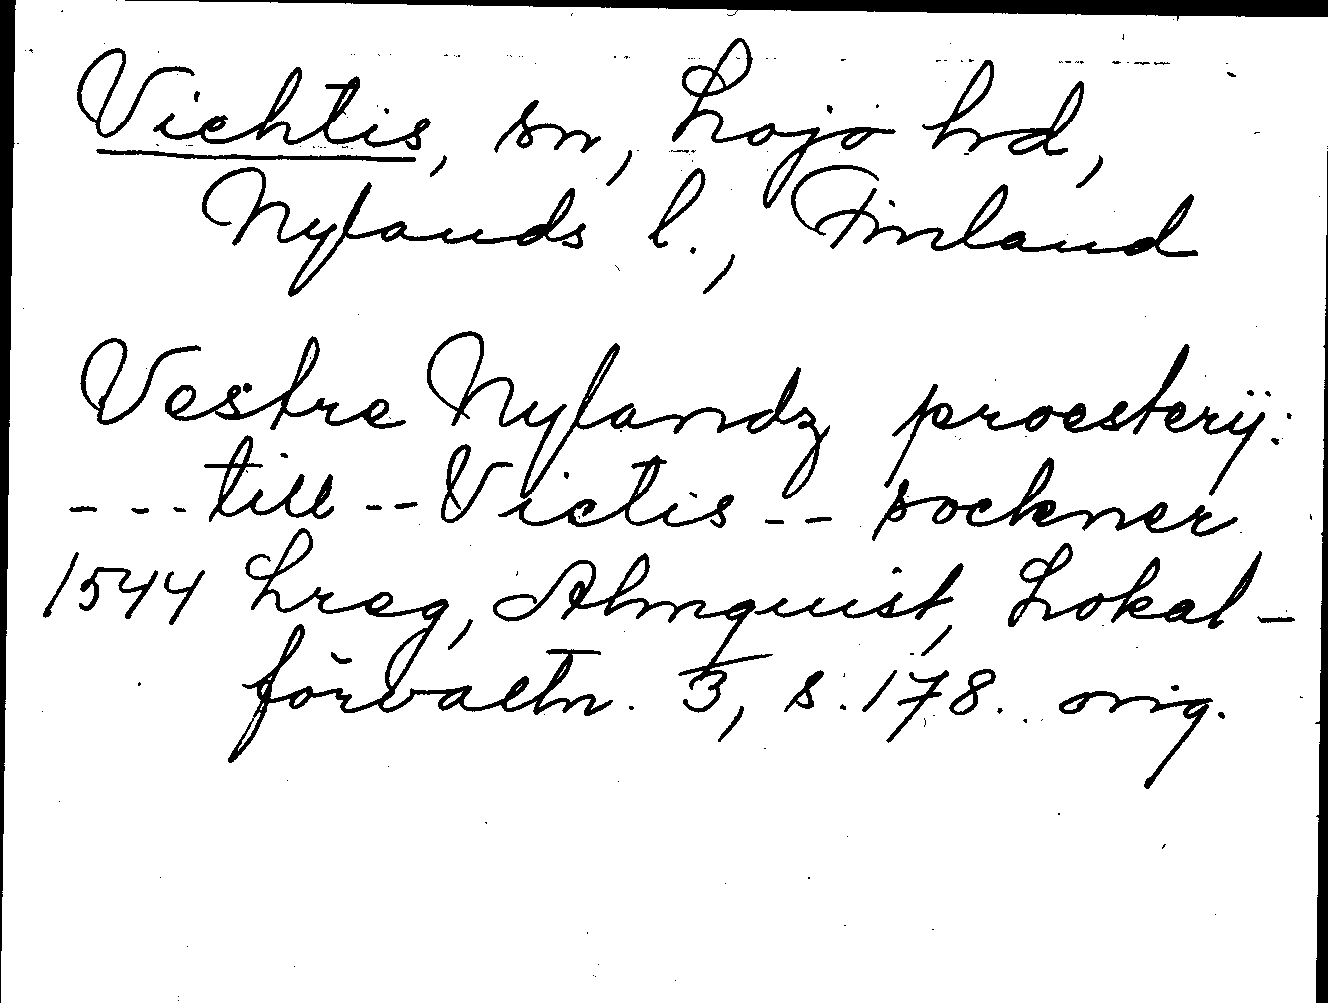 Vichtis, sn, Lojo hd,
Nylands l., Finland
Vestre Nylandz proesterij:
- - - till - - Victis - - sockner
1544 Lreg, Almquist, Lokal-
förvaltn. 3, s. 178. orig.